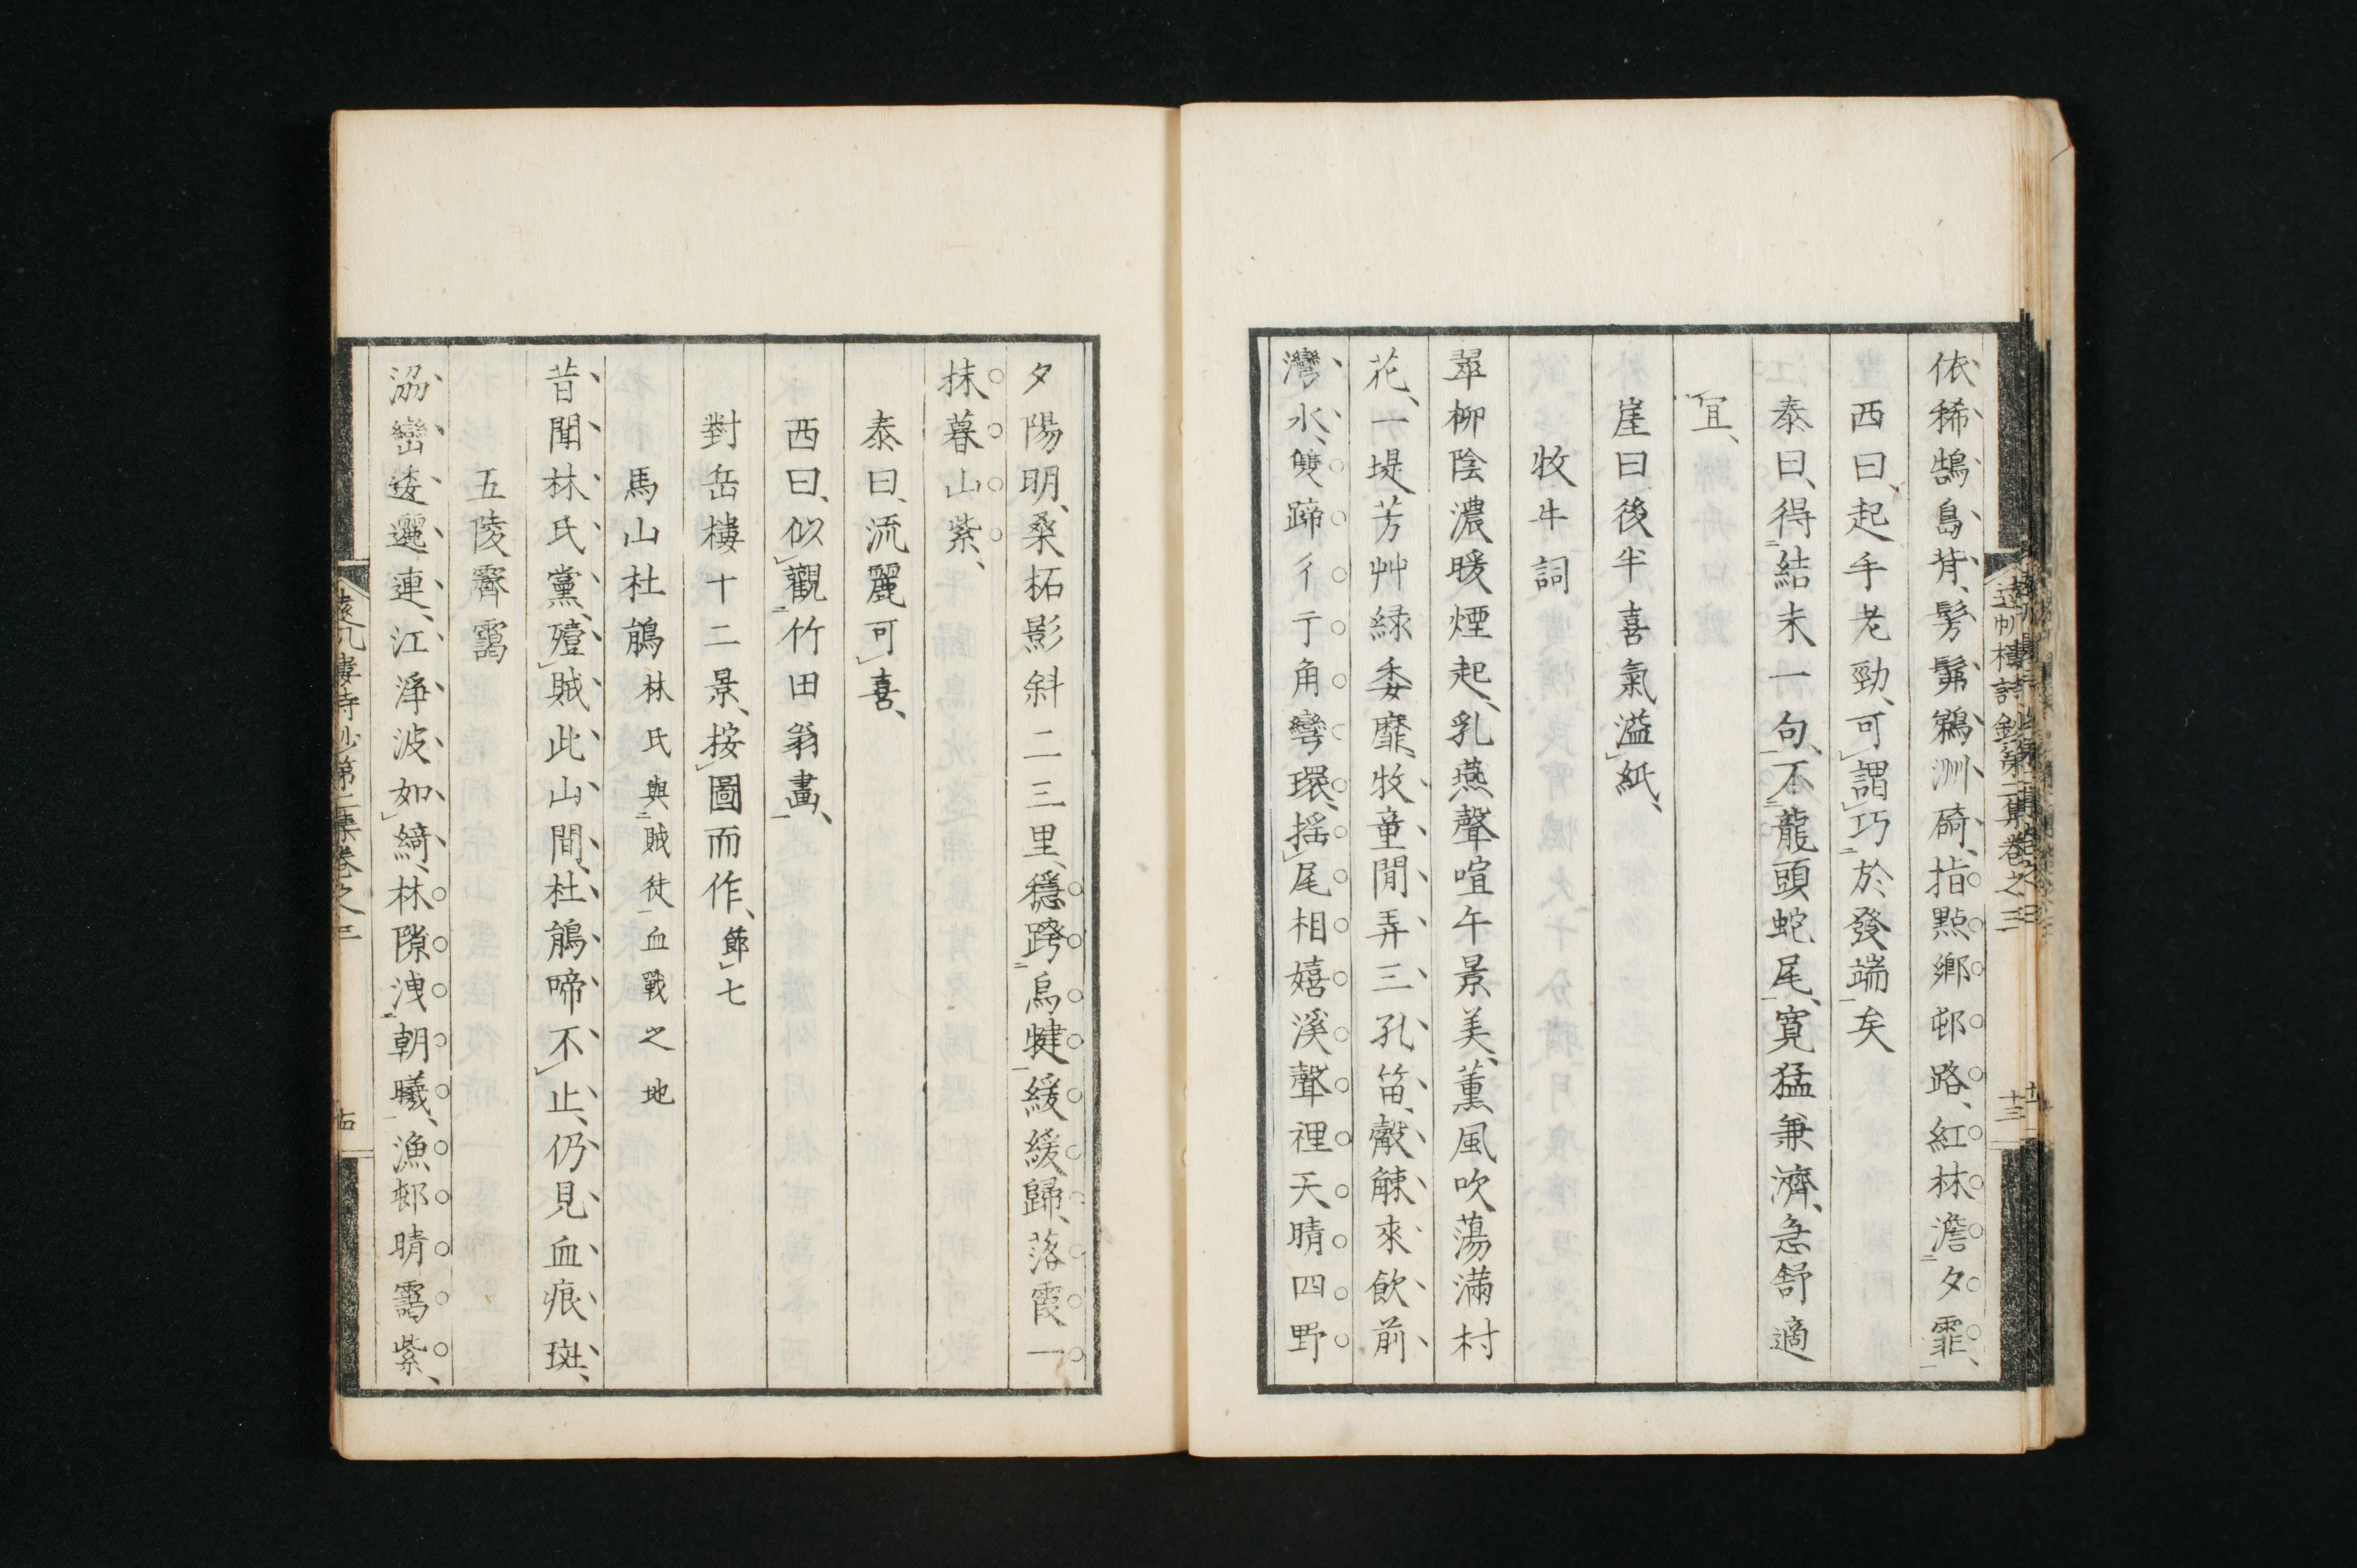 依稀鵠島背、髣髴鵜洲碕、指點鄉邨路、紅林澹夕霏、
西曰、起手老勁、可謂巧於發端矣
泰曰、得結末一句、不龍頭蛇尾、寛猛兼濟、急舒適
宜、
崖曰後半喜氣溢紙、
牧牛詞
翠柳陰濃暖煙起、乳燕聲喧午景美、薰風吹蕩滿村
花、一堤芳艸緑委靡、牧童閒弄三孔笛、觳觫來飲前
灣水、雙蹄彳亍角彎環、揺尾相嬉溪聲裡天晴四野
夕陽明、桑拓影斜二三里、穏跨烏犍緩緩歸、落霞一
抹暮山紫、
泰曰、流麗可喜、
西曰、似觀竹田翁畫、
對岳樓十二景、按圖而作、節七
馬山杜鵑 林氏與賊徒血戰之地
昔聞林氏黨、殪賊此山間、杜鵑啼不止、仍見血痕斑、
五陵霽靄
沕巒逶邐連、江淨波如綺、林隙洩朝曦、漁邨晴靄紫、